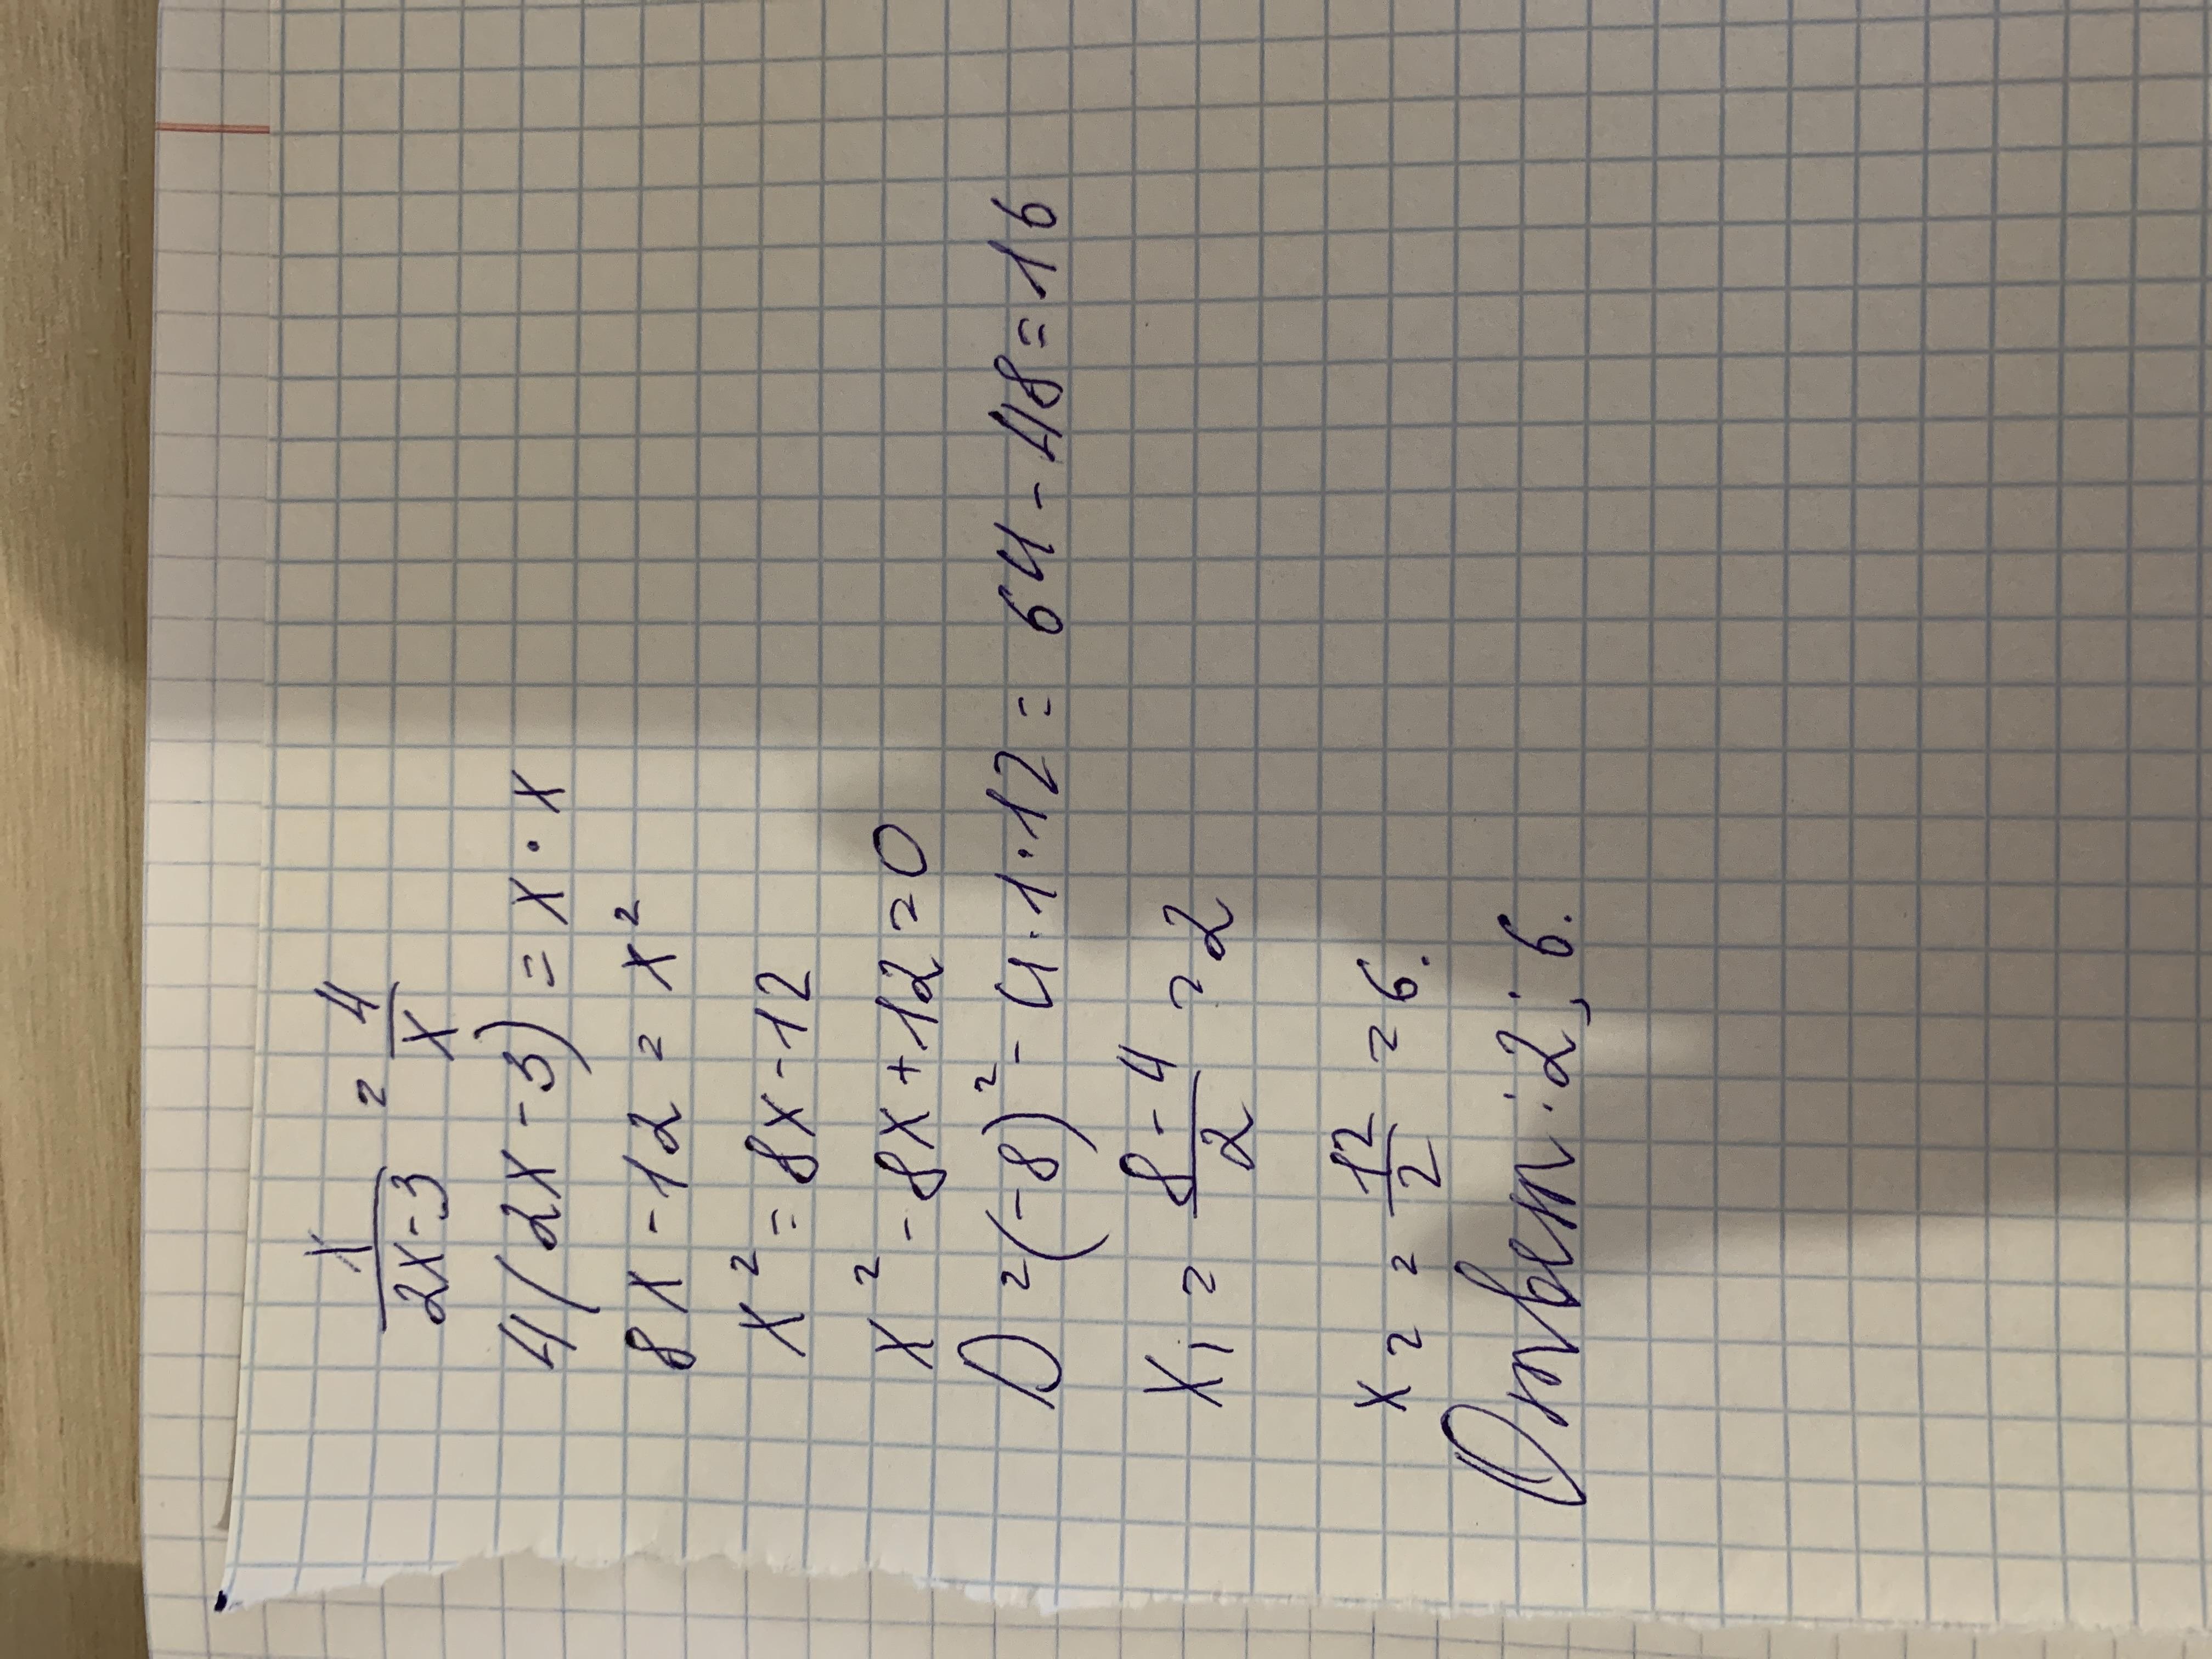 x/(2x-3) = 4/x
4(2x-3) = x·x
8x-12 = x²
x² = 8x-12
x²-8x+12=0
D=(-8)²-4·1·12=64-48=16
x₁ = (8-4)/2 = 2
x₂ = 12/2 = 6.
Ответ: 2; 6.